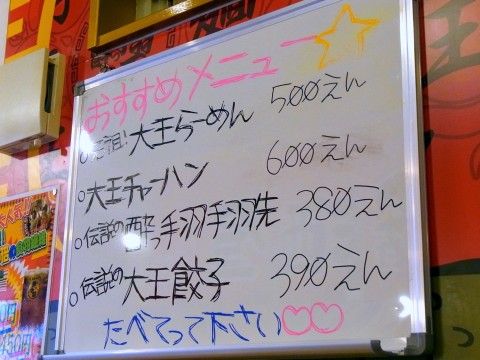 おすすめメニュー☆
○元祖!大王らーめん 500えん
○大王チャーハン 600えん
○伝説の酔っ手羽手羽先 380えん
○伝説の大王餃子 390えん
たべてって下さい♡♡
王
450円